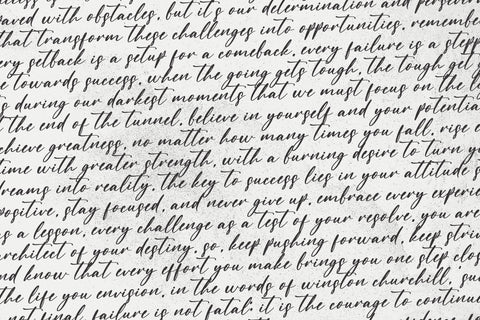 paved with obstacles, but it's our determination and
that transform these challenges into opportunities, remember
every setback is a setup for a comeback, every failure is a
towards success, when the going gets tough, the tough get
during our darkest moments that we must focus on the
the end of the tunnel, believe in yourself and your
achieve greatness, no matter how many times you fall, rise
time with greater strength, with a burning desire to turn
dreams into reality, the key to success lies in your attitude
positive, stay focused, and never give up, embrace every
as a lesson, every challenge as a test of your resolve, you are
architect of your destiny, so, keep pushing forward, keep
and know that every effort you make brings you one step
the life you envision, in the words of winston churchill,
not final, failure is not fatal: it is the courage to continue